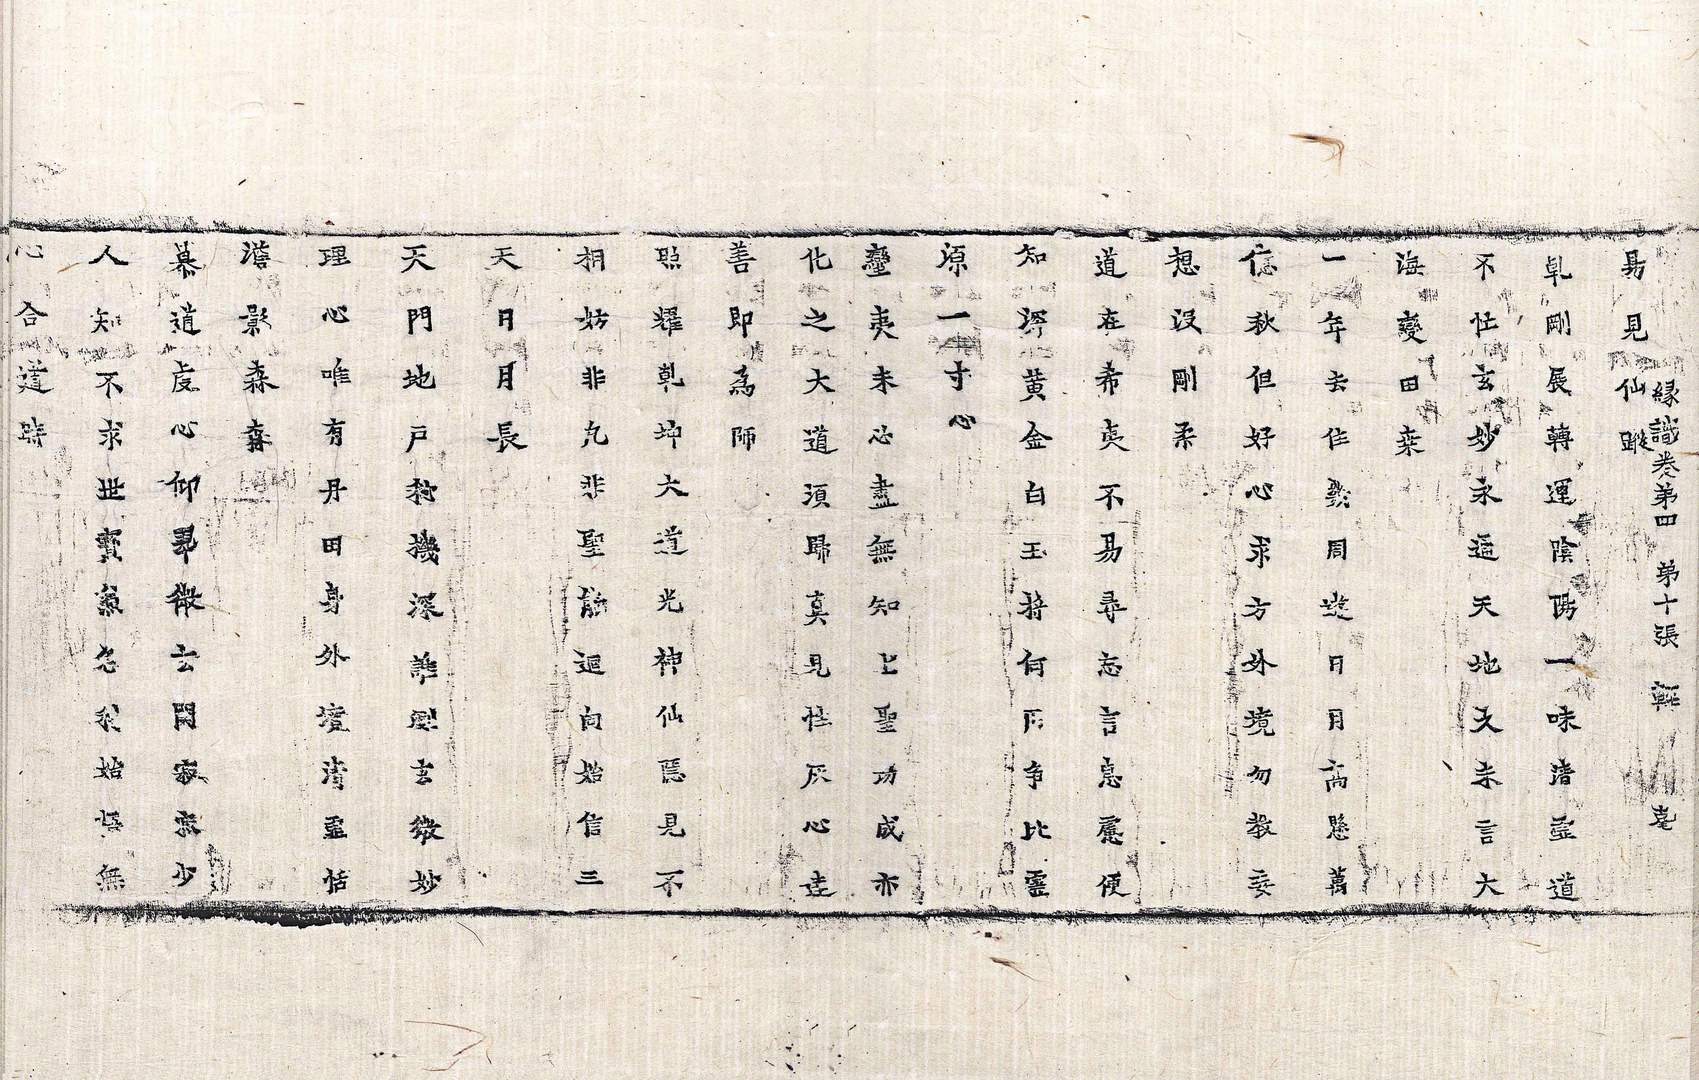 緣識卷第四 第十張 䡖
易見仙蹤
乹剛展轉運陰陽一味清虛道
不忙玄妙永遍天地久未言大
海變田桒
一年去住幾周遊日月高懸萬
億秋但好心求方外境勿教妄
想沒剛柔
道在希夷不易尋忘言息慮便
知深黃金白玉將何用爭比靈
源一寸心
蠻夷未必盡無知上聖功成亦
化之大道須歸真見性灰心達
善即為師
照耀乹坤大道光神仙隱見不
相妨非凢非聖能迴向始信三
天日月長
天門地戶秘機深誰測玄微妙
理心唯有丹田身外寶清靈恬
澹影森森
慕道虔心仰翠微玄門寂寞少
人知不求世寶兼忘我始悟無
心合道時